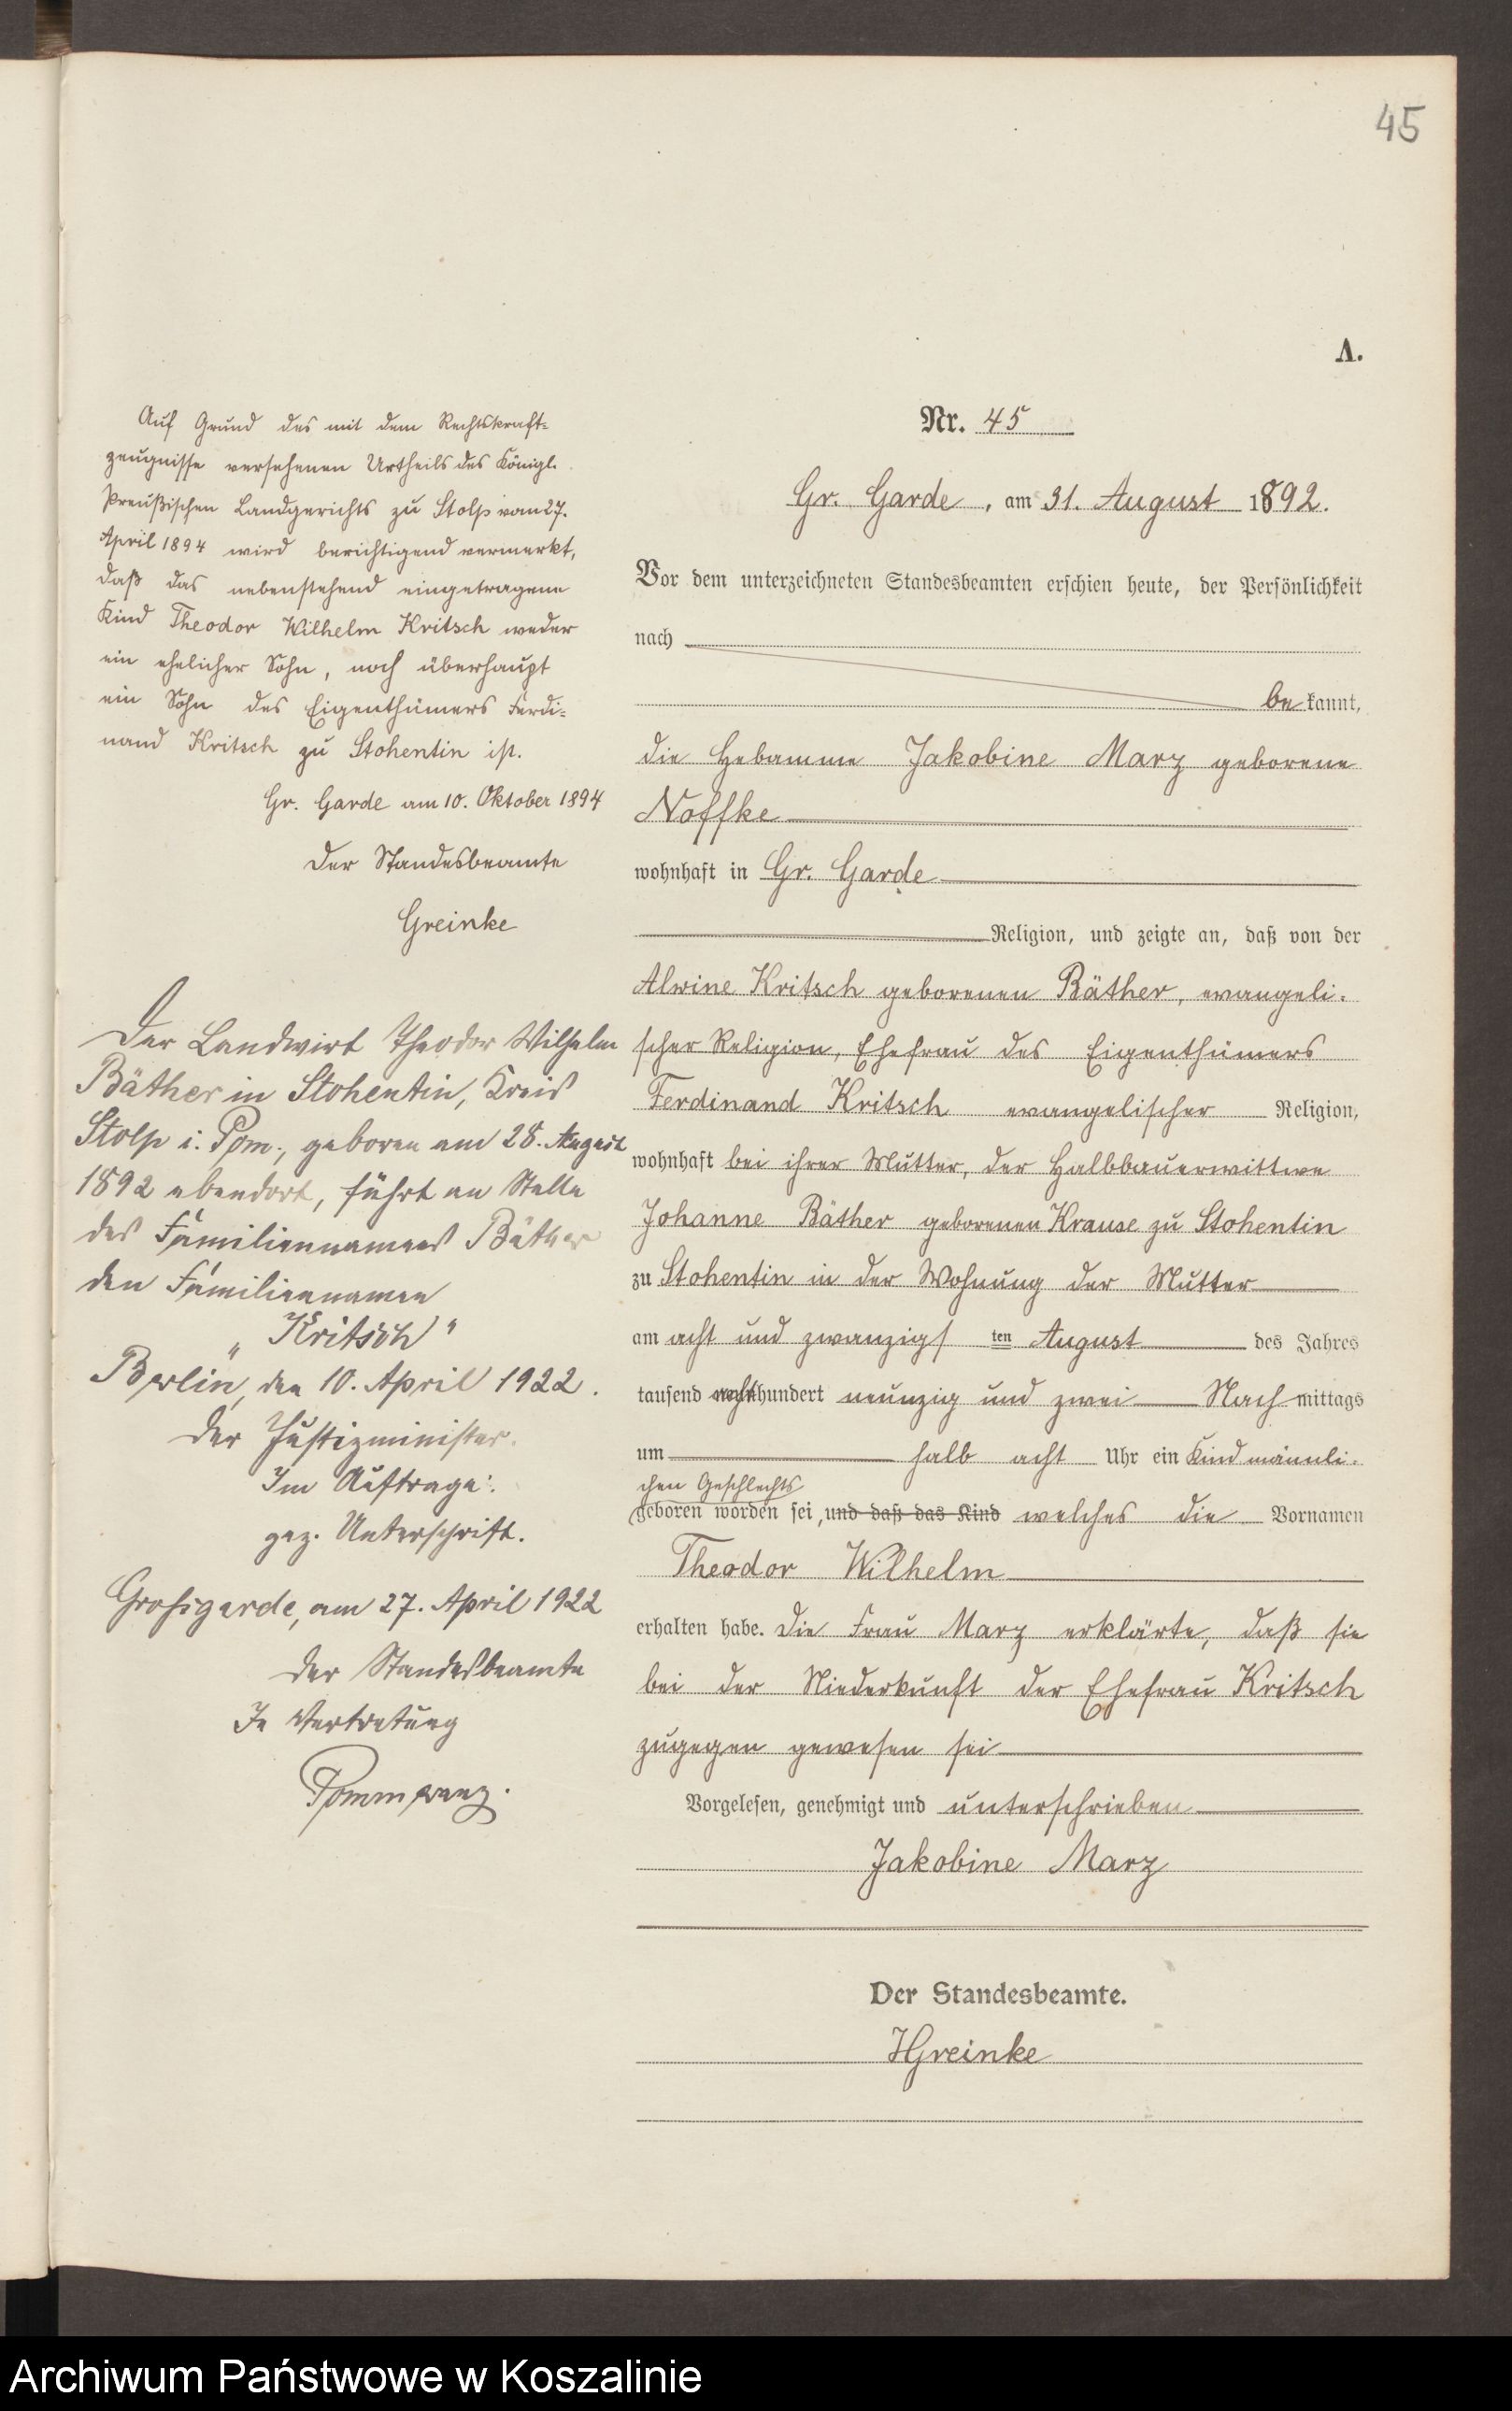 45
A.
Auf Grund des mit dem Rechtskraft-
zeugnisse versehenen Urtheils des Königl.
Preußischen Landgerichts zu Stolp vom 27.
April 1894 wird berichtigend vermerkt,
daß das nebenstehend eingetragene
Kind Theodor Wilhelm Kritsch weder
ein ehelicher Sohn, noch überhaupt
ein Sohn des Eigenthümers Ferdi-
nand Kritsch zu Stohentin ist.
Gr. Garde am 10. Oktober 1894
Der Standesbeamte
Greinke
Der Landwirt Theodor Wilhelm
Bäther in Stohentin, Kreis
Stolp i. Pom., geboren am 28. August
1892 ebendort, führt an Stelle
des Familiennamens Bäther
den Familiennamen
„Kritsch"
Berlin, den 10. April 1922.
Der Justizminister.
Im Auftrage:
gez. Unterschrift.
Grossgarde, am 27. April 1922
Der Standesbeamte
In Vertretung
Nr. 45
Gr. Garde, am 31. August 1892.
Vor dem unterzeichneten Standesbeamten erschien heute, der Persönlichkeit
nach
be kannt,
die Hebamme Jakobine Marz geborene
Noffke
wohnhaft in Gr. Garde
Religion, und zeigte an, daß von der
Alwine Kritsch geborenen Bäther, evangeli-
scher Religion, Ehefrau des Eigenthümers
Ferdinand Kritsch evangelischer Religion,
wohnhaft bei ihrer Mutter, der Halbbauerwittwe
Johanne Bäther geborenen Krause zu Stohentin
zu Stohentin in der Wohnung der Mutter
am acht und zwanzigs ten August des Jahres
tausend acht hundert neunzig und zwei Nach mittags
um halb acht Uhr ein Kind männli-
chen Geschlechts
geboren worden sei, und daß das Kind welches die Vornamen
Theodor Wilhelm
erhalten habe. Die Frau Marz erklärte, daß sie
bei der Niederkunft der Ehefrau Kritsch
zugegen gewesen sei
Vorgelesen, genehmigt und unterschrieben
Jakobine Marz
Der Standesbeamte.
HGreinke
Archiwum Państwowe w Koszalinie